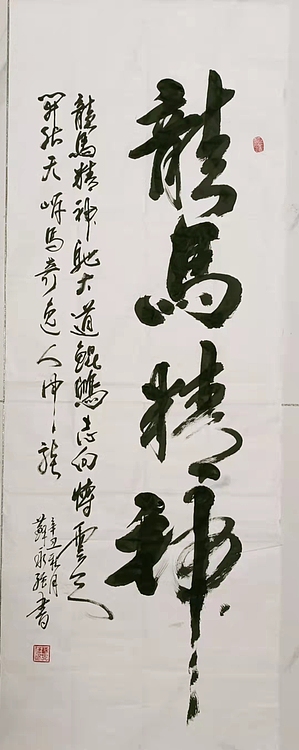 龍馬精神
龍馬精神馳大道鯤鵬志向慱雲天
開張天岸馬奇逸人中龍
辛丑秋月
蘇永強書